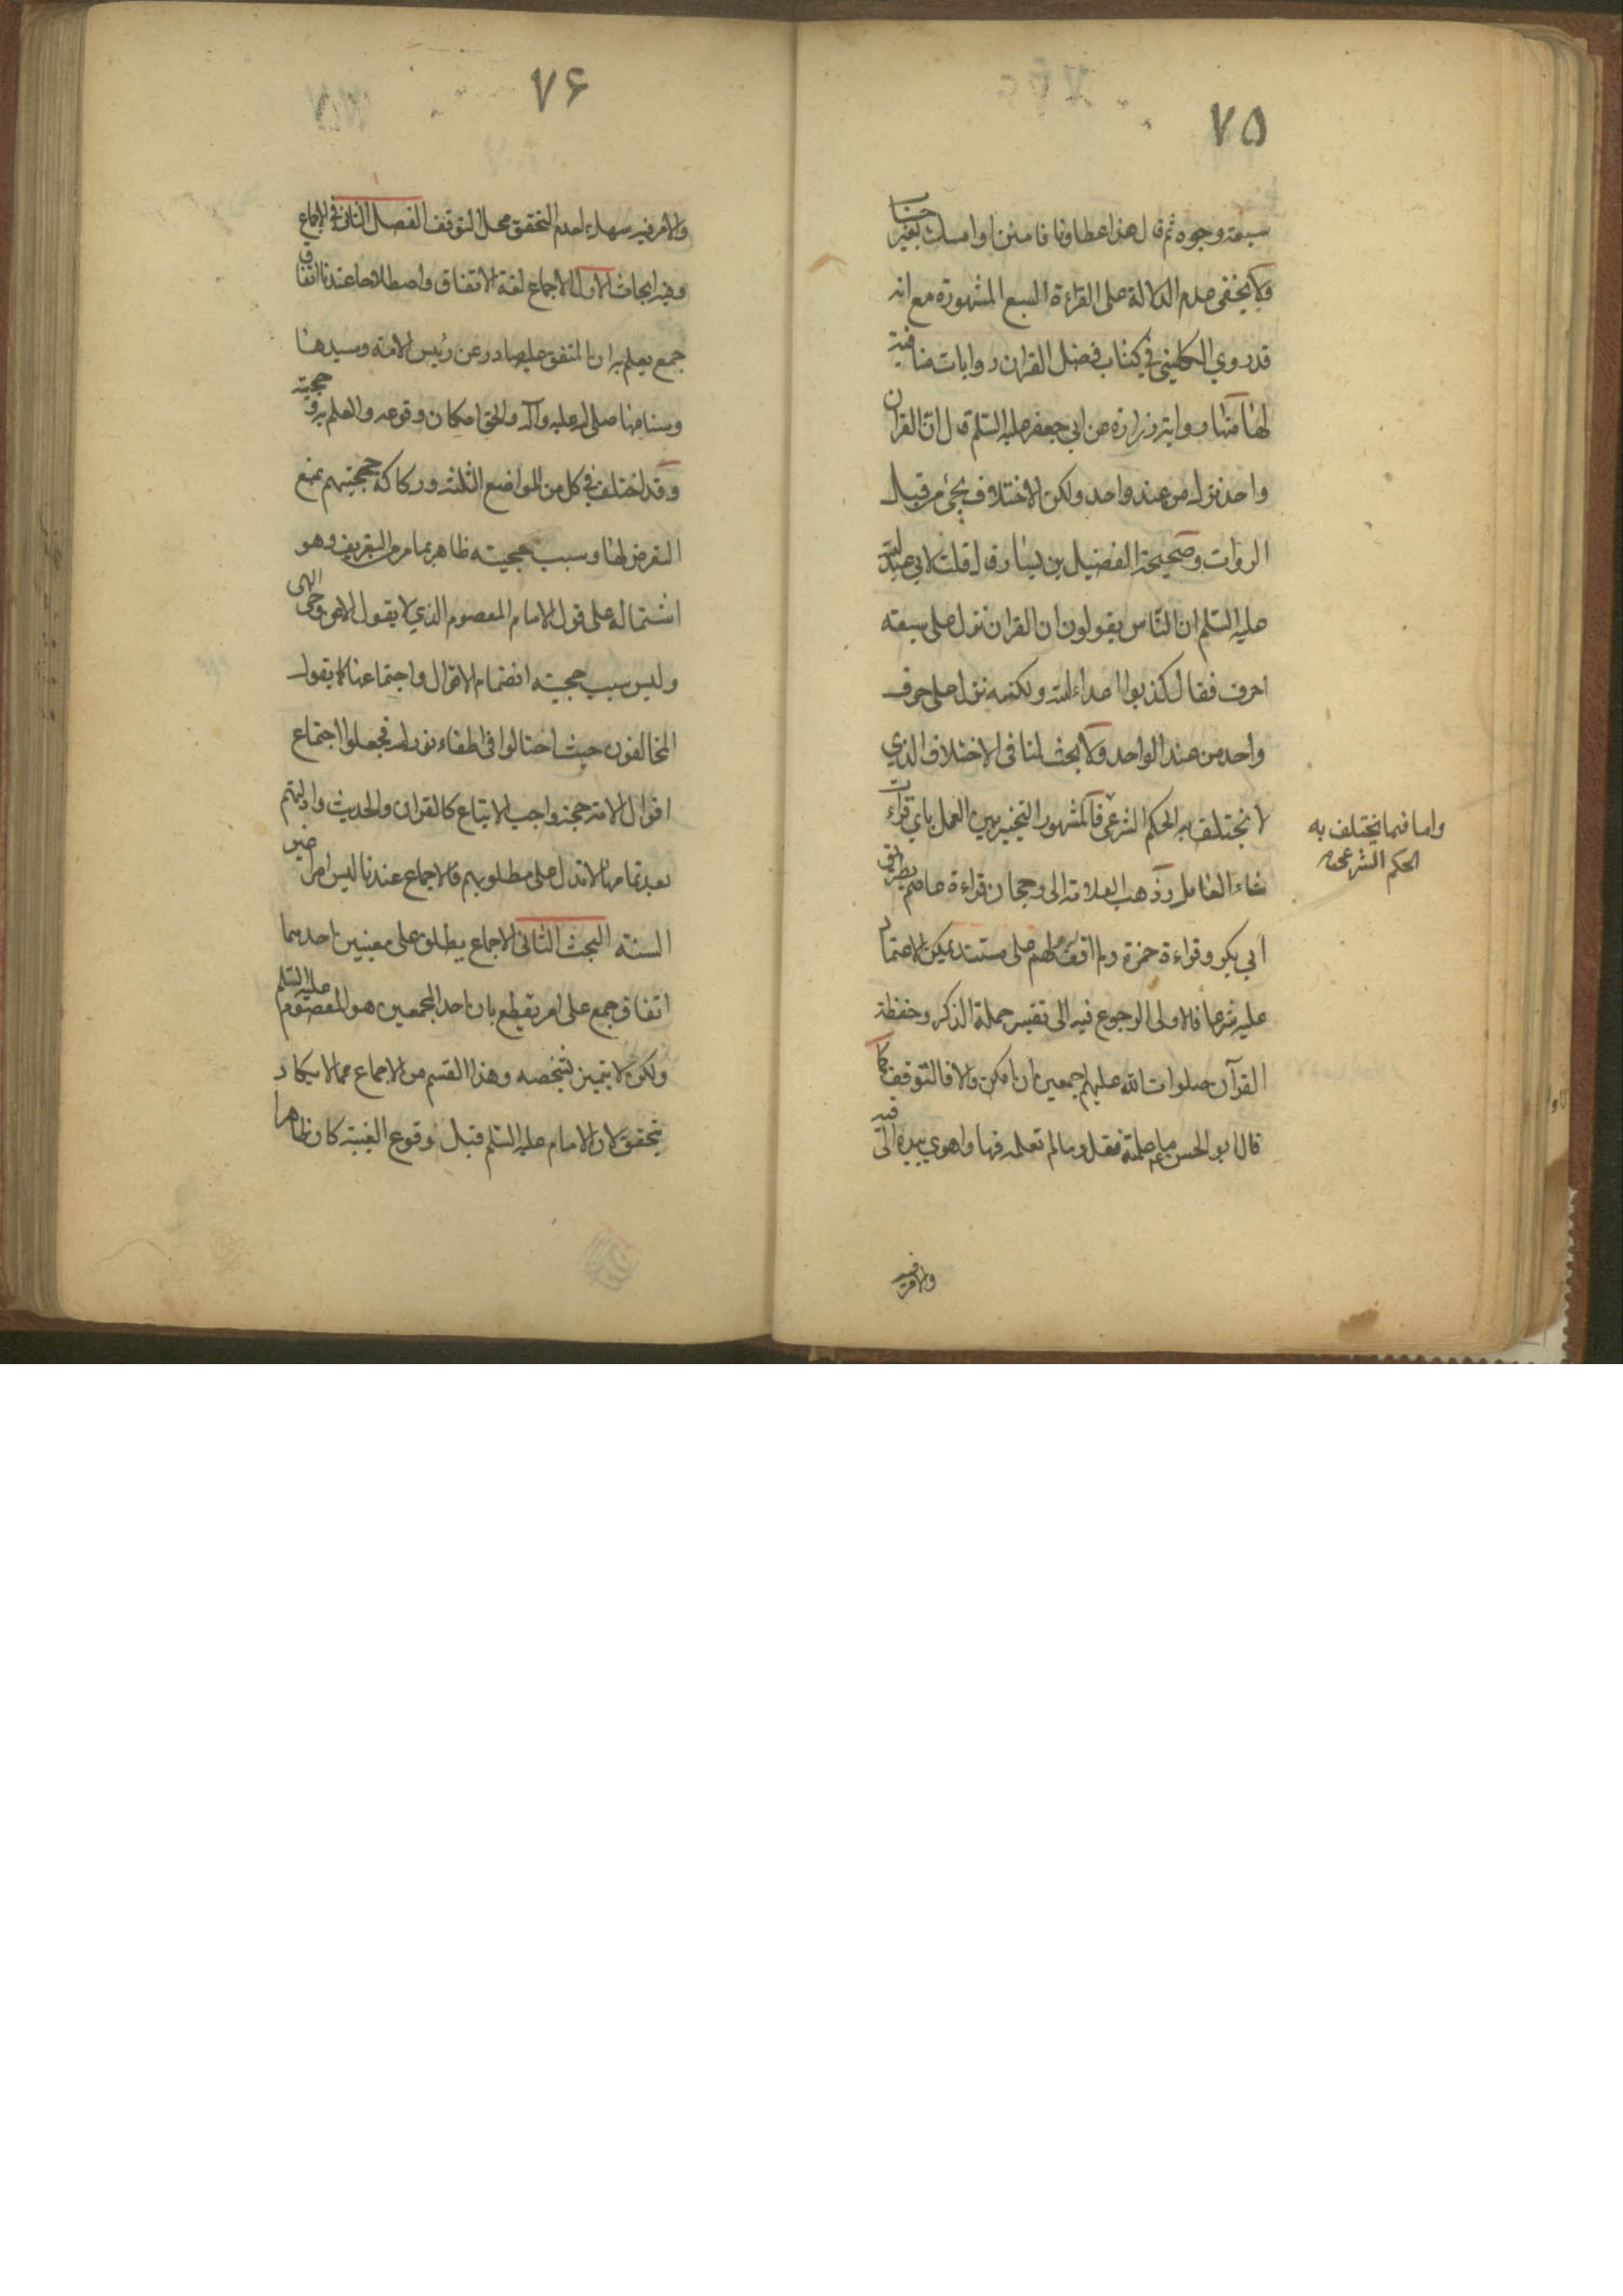 ٧٥
سبعة وجوه ثم قال هذا عطاونا فامنن او امسك بغير حساب
ولا يخفى عدم الدلالة على القراءة السبع المشهورة مع انه
قد روى الكليني في كتاب فضل القران روايات منافية
لها منها رواية زرارة عن ابي جعفر عليه السلم قال ان القران
واحد نزل من عند واحد ولكن الاختلاف يجئ من قبل
الروات وصحيحة الفضيل بن يسار قال قلت لابي عبد الله
عليه السلم ان الناس يقولون ان القران نزل على سبعة
احرف فقال كذبوا اعداء الله ولكنه نزل على حرف
واحد من عند الواحد ولا بحث لنا في الاختلاف الذي
لا يختلف به الحكم الشرعي فالمشهور التخيير بين العمل باي قراءت
شاء العامل وذهب العلامة الى رجحان قراءة عاصم بطريق
ابي بكر وقراءة حمزة ولم اقف لهم على مستند يمكن الاعتماد
عليه شرعا فالاولى الرجوع فيه الى تفسير حملة الذكر وحفظة
القرآن صلوات الله عليهم اجمعين ان امكن والا فالتوقف كما
قال ابو الحسن ع ما علمته فقل وما لم تعلمه فها واهوى بيده الى فيه
واما فيما يختلف به
الحكم الشرعي
والامر فيه
٧۶
والامر فيه سهل لعدم التحقق محل التوقف الفصل الثاني في الاجماع
وفيه ابحاث الاول الاجماع لغة الاتفاق واصطلاحا عندنا اتفاق
جمع يعلم به ان المتفق عليه صادر عن رئيس الامة وسيدها
وسنامها صلى الله عليه وآله والحق امكان وقوعه والعلم به وحجيته
وقد اختلف في كل من المواضع الثلثة وركاكة حججتهم يمنع
التعرض لها وسبب حجيته ظاهر بما مر من التعريف وهو
اشتماله على قول الامام المعصوم الذي لا يقول الا عن وحي الهي
وليس سبب حجيته انضمام الاقوال واجتماعنا كما يقول
المخالفون حيث احتالوا في اطفاء نور الله فجعلوا اجتماع
اقوال الامة حجة واجب الاتباع كالقران والحديث وادلتهم
بعد تمامها لا تدل على مطلوبهم فالاجماع عندنا ليس امرا غير
السنة البحث الثاني الاجماع يطلق على معنيين احدهما
اتفاق جمع على امر يقطع بان احد المجمعين هو المعصوم عليه السلم
ولكن لا يتميز شخصه وهذا القسم من الاجماع مما لا يكاد
يتحقق لان الامام عليه السلم قبل وقوع الغيبة كان ظاهرا